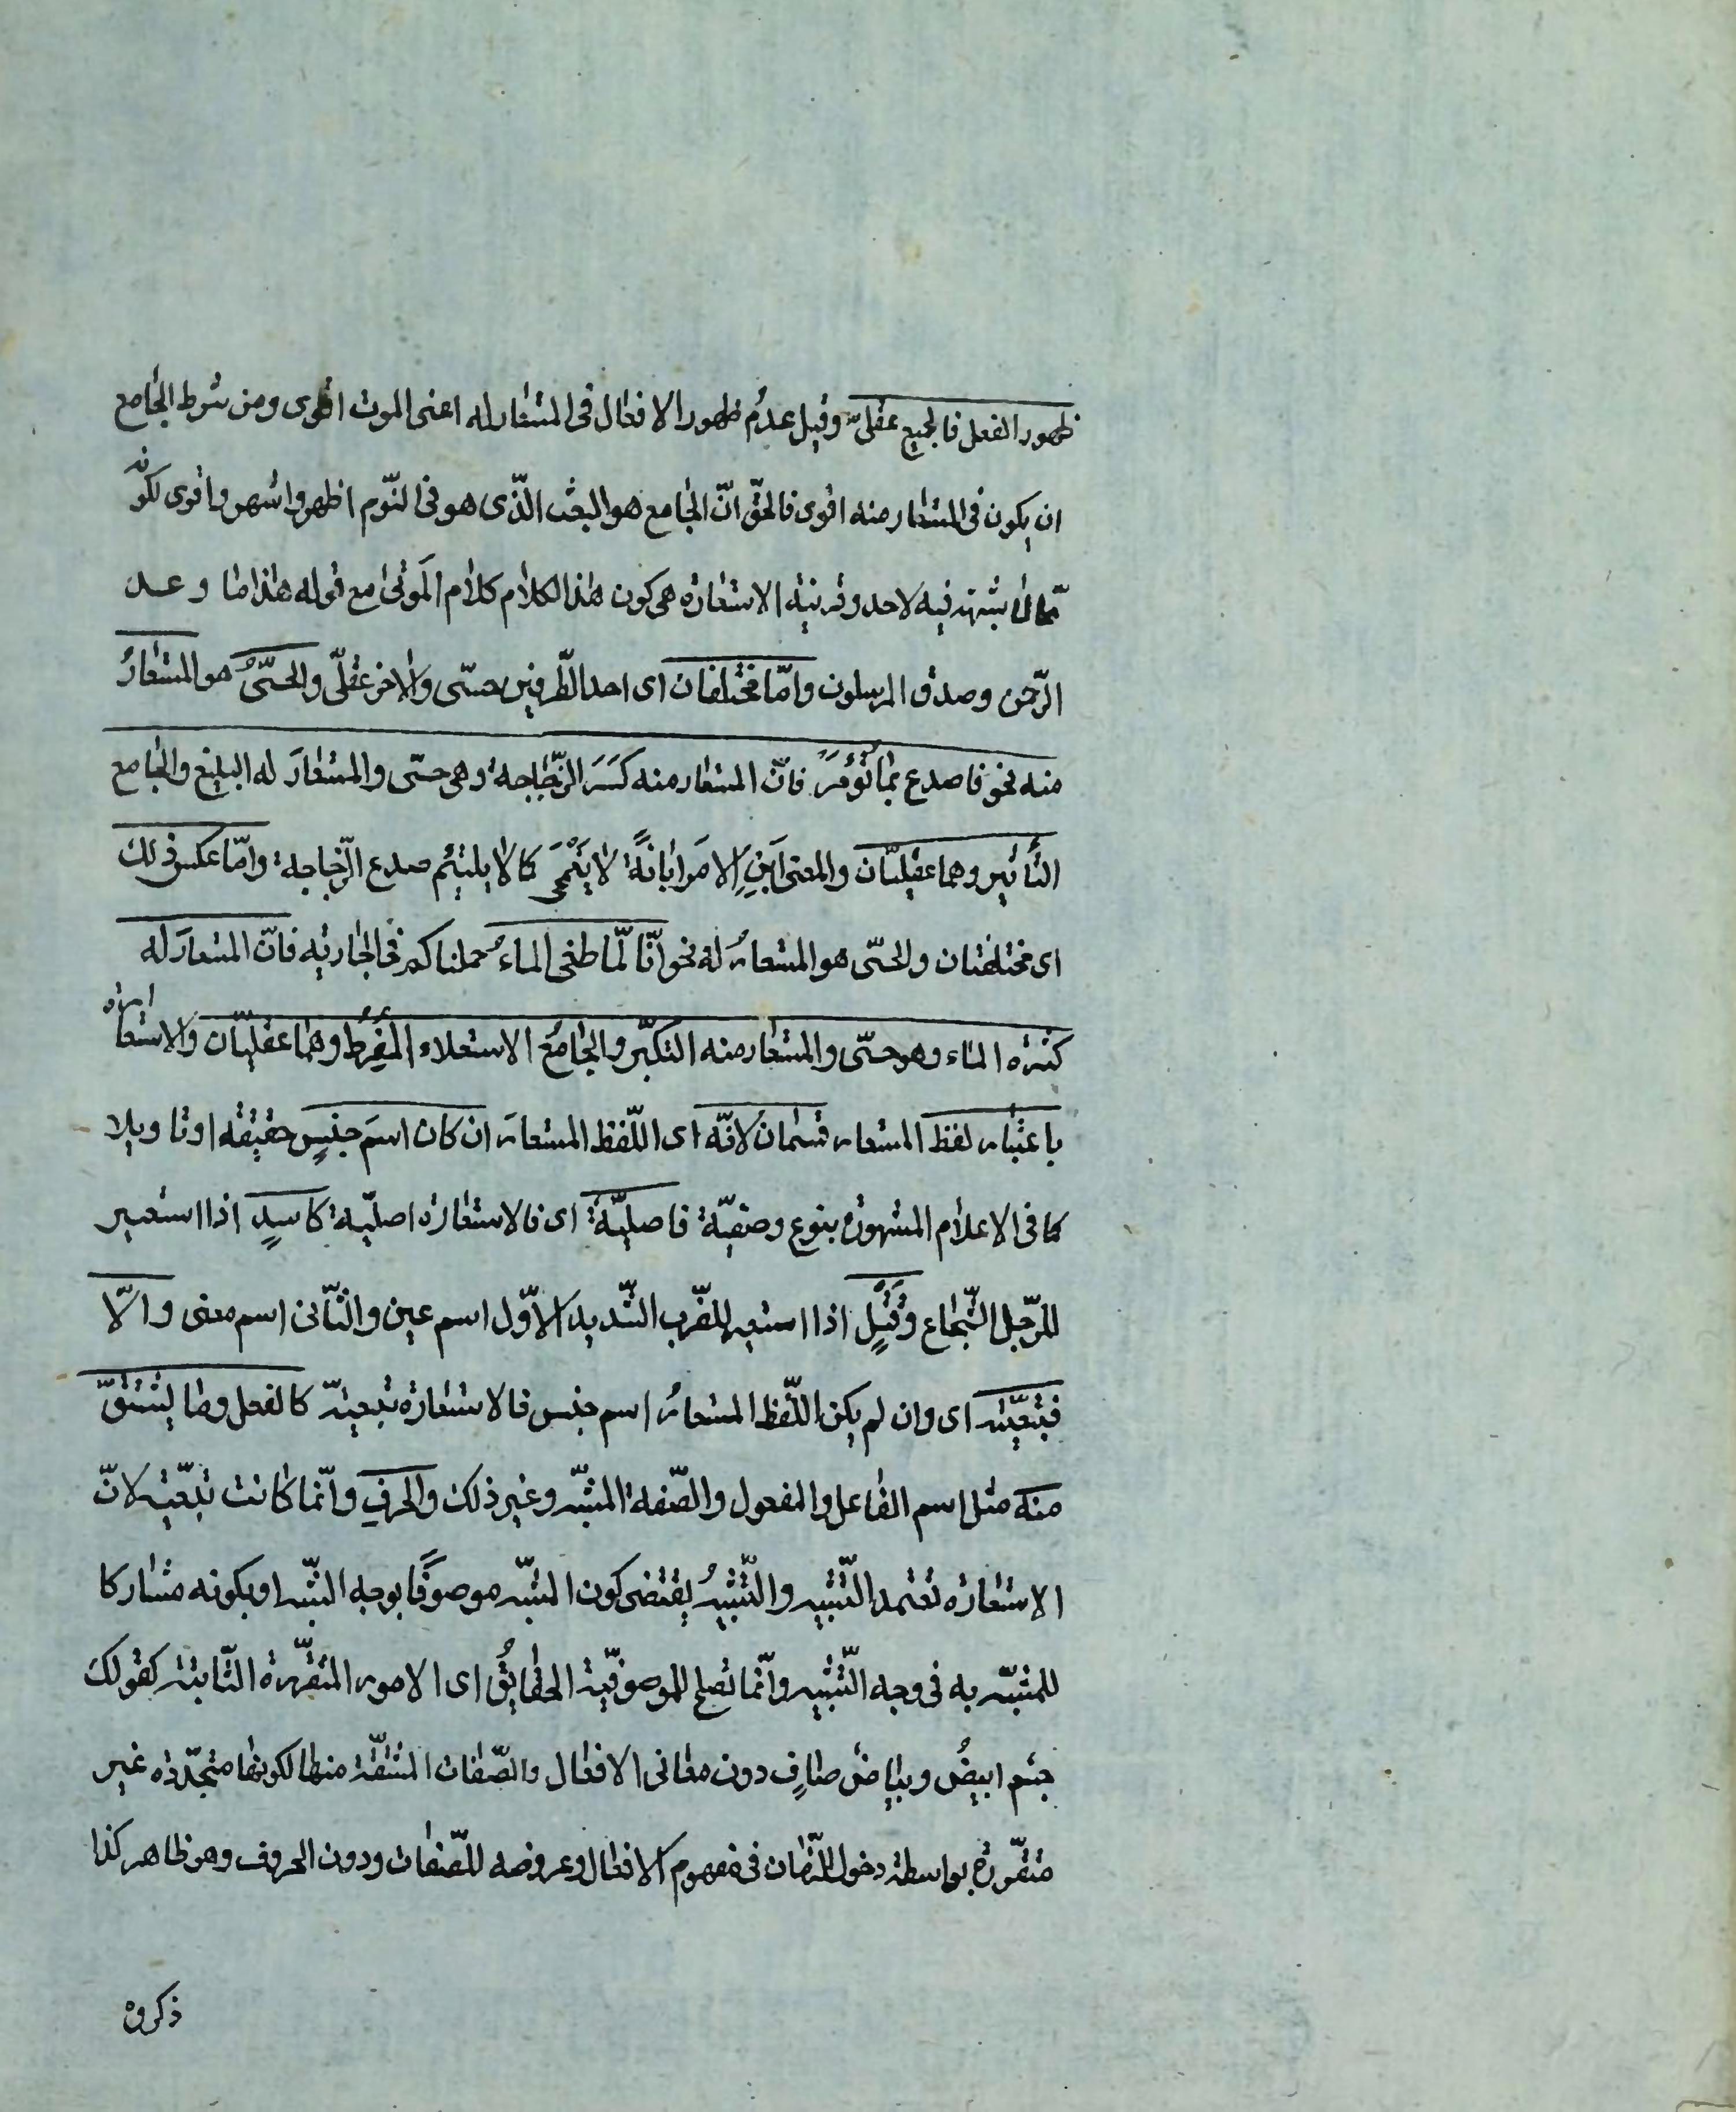 ظهور الفعل فالجميع عقلیّ وقيل عدم ظهور الافعال فى المستعار له اعنى الموت اقوى ومن شرط الجامع
ان يكون فى المستعار منه اقوى فالحقّ انّ الجامع هو البعث الّذى هو فى النّوم اظهر واشهر واقوى لكونه
ممّا لا شبهة فيه لاحد وقرينة الاستعارة هى كون هذا الكلام كلام الموتى مع قوله هذا ما وعد
الرّحمن وصدق المرسلون وامّا مختلفان اى احد الطّرفين حسّى والاخر عقلىّ والحسّىُّ هو المستعارُ
منه نحو فاصدع بما تُؤْمَرُ فانّ المستعار منه كسر الزّجاجة وهى حسّى والمستعار له البليغ والجامع
التأثير وهما عقليّان والمعنى اَبِنِ الامرَ ابانةً لا يَنْمَحى كما لا يلتئم صدع الزّجاجة وامّا عكس ذلك
اى مختلفتان والحسّى هو المستعارُ له نحو انّا لمّا طغى الماءُ حملناكم فى الجارية فانّ المستعار له
كثرة الماء وهو حسّى والمستعار منه التكبّر والجامعُ الاستعلاء المُفْرِطُ وهما عقليّان والاستعارة
باعتبار لفظ المستعار قسمان لانّه اى اللّفظ المستعار ان كان اسمَ جنسٍ حقيقه او تاويلا
كما فى الاعلام المشهورة بنوع وصفيّة فاصليّة اى فالاستعارة اصليّة كاسدٍ اذا استعير
للرّجل الشّجاع وقتلٍ اذا استعير للضّرب الشّديد الاوّل اسم عين والثّانى اسم معنى والّا
فتبعيّته اى وان لم يكن اللّفظ المستعارُ اسم جنس فالاستعارة تبعيّة كالفعل وما يشتقّ
منه مثل اسم الفاعل والمفعول والصّفة المشبّه وغير ذلك والحرفِ وانّما كانت تبعّيه لانّ
الاستعارة تعتمد التّشبيه والتّشبيهُ يقتضى كون المشبّه موصوفًا بوجه الشّبه او بكونه مشاركا
للمشبّه به فى وجه التّشبيه وانّما تصلح للموصوفيّة الحقايقُ اى الامور المتقرّرة الثّابتة كقولك
جسم ابيضُ وبياضٌ صافٍ دون معانى الافعال والصّفات المشتقّة منها لكونها متجدّدة غير
متقرّرة بواسطة دخول الزّمان فى مفهوم الافعال وعروضه للصّفات ودون الحروف وهو ظاهر كذا
ذكروه